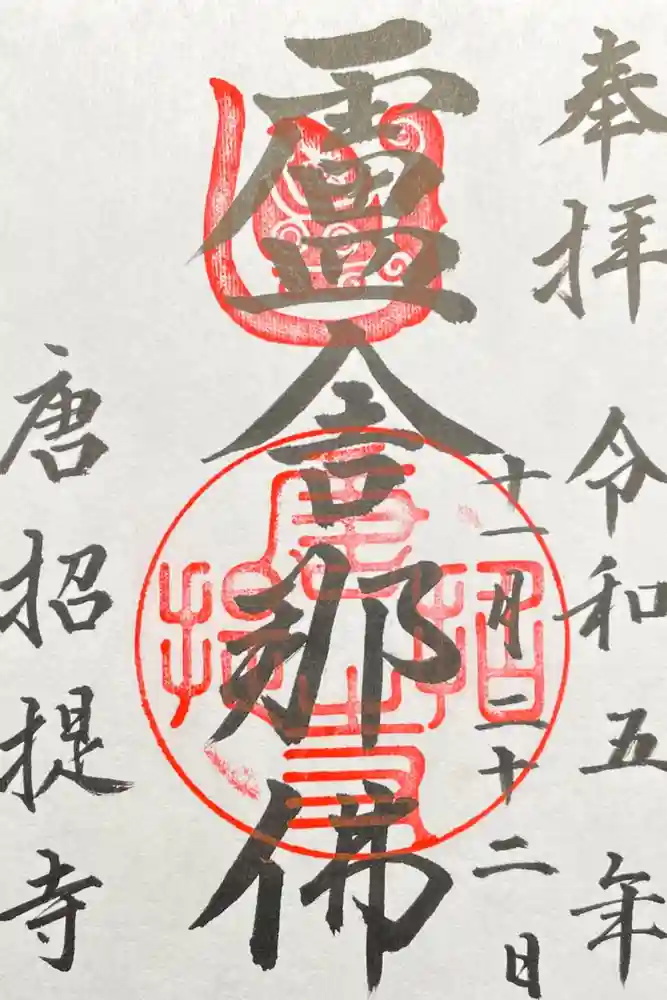 奉拝 令和五年
十一月二十二日
盧舎那佛
唐招提寺
唐招提寺